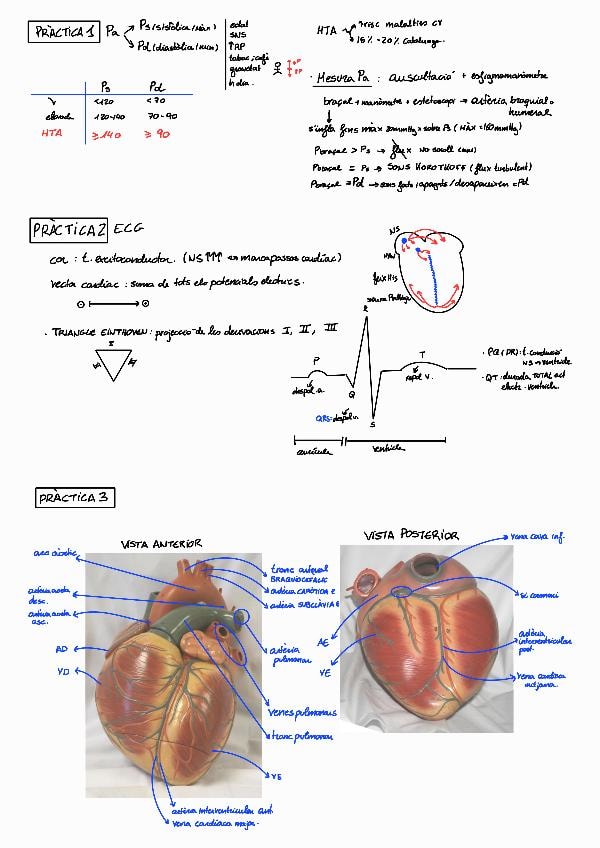 PRÀCTICA 1
Pa
Ps (sistòlica/màx)
Pd (diastòlica/mín)
edat
SNS
↑RP
tabac, cafè
gravetat
h. dia.
HTA
↑ risc malalties CV
15% - 20% Catalunya.
Ps Pd
<120 <70
120-140 70-90
HTA ≥140 ≥90
· Mesura Pa: auscultació + esfigmomanòmetre
braçal + manòmetre + estetoscopi → artèria braquial o
humeral
Pbraçal > Ps → flux No soroll
Pbraçal = Ps → SONS KOROTKOFF (flux turbulent)
Pbraçal = Pd → sons forts/apagats/desapareixen = Pd
PRÀCTICA 2 ECG
cor: t. excitoconductor. (NS ↑↑↑ marcapassos cardíac)
vector cardíac: suma de tots els potencials elèctrics.
NS
flux His
xarxa Purkinje
· TRIANGLE EINTHOVEN: projecció de les derivacions I, II, III
I
P
Q
R
S
T
despol. a.
QRS: despol. v.
repol v.
aurícula
ventricle
· PQ (PR): t. conducció
NS → ventricle
· QT: durada TOTAL act
elèctr. ventricle.
PRÀCTICA 3
VISTA ANTERIOR
VISTA POSTERIOR
arc aòrtic
artèria aorta
desc.
artèria aorta
asc.
AD
VD
tronc arterial
BRAQUIOCEFÀLIC
artèria CARÒTIDA E
artèria SUBCLÀVIA E
artèria
pulmonar
venes pulmonars
tronc pulmonar
VE
artèria interventricular ant.
vena cardíaca major.
vena cava inf.
si coronari
artèria
interventricular
post.
vena cardíaca
mitjana.
AE
VE